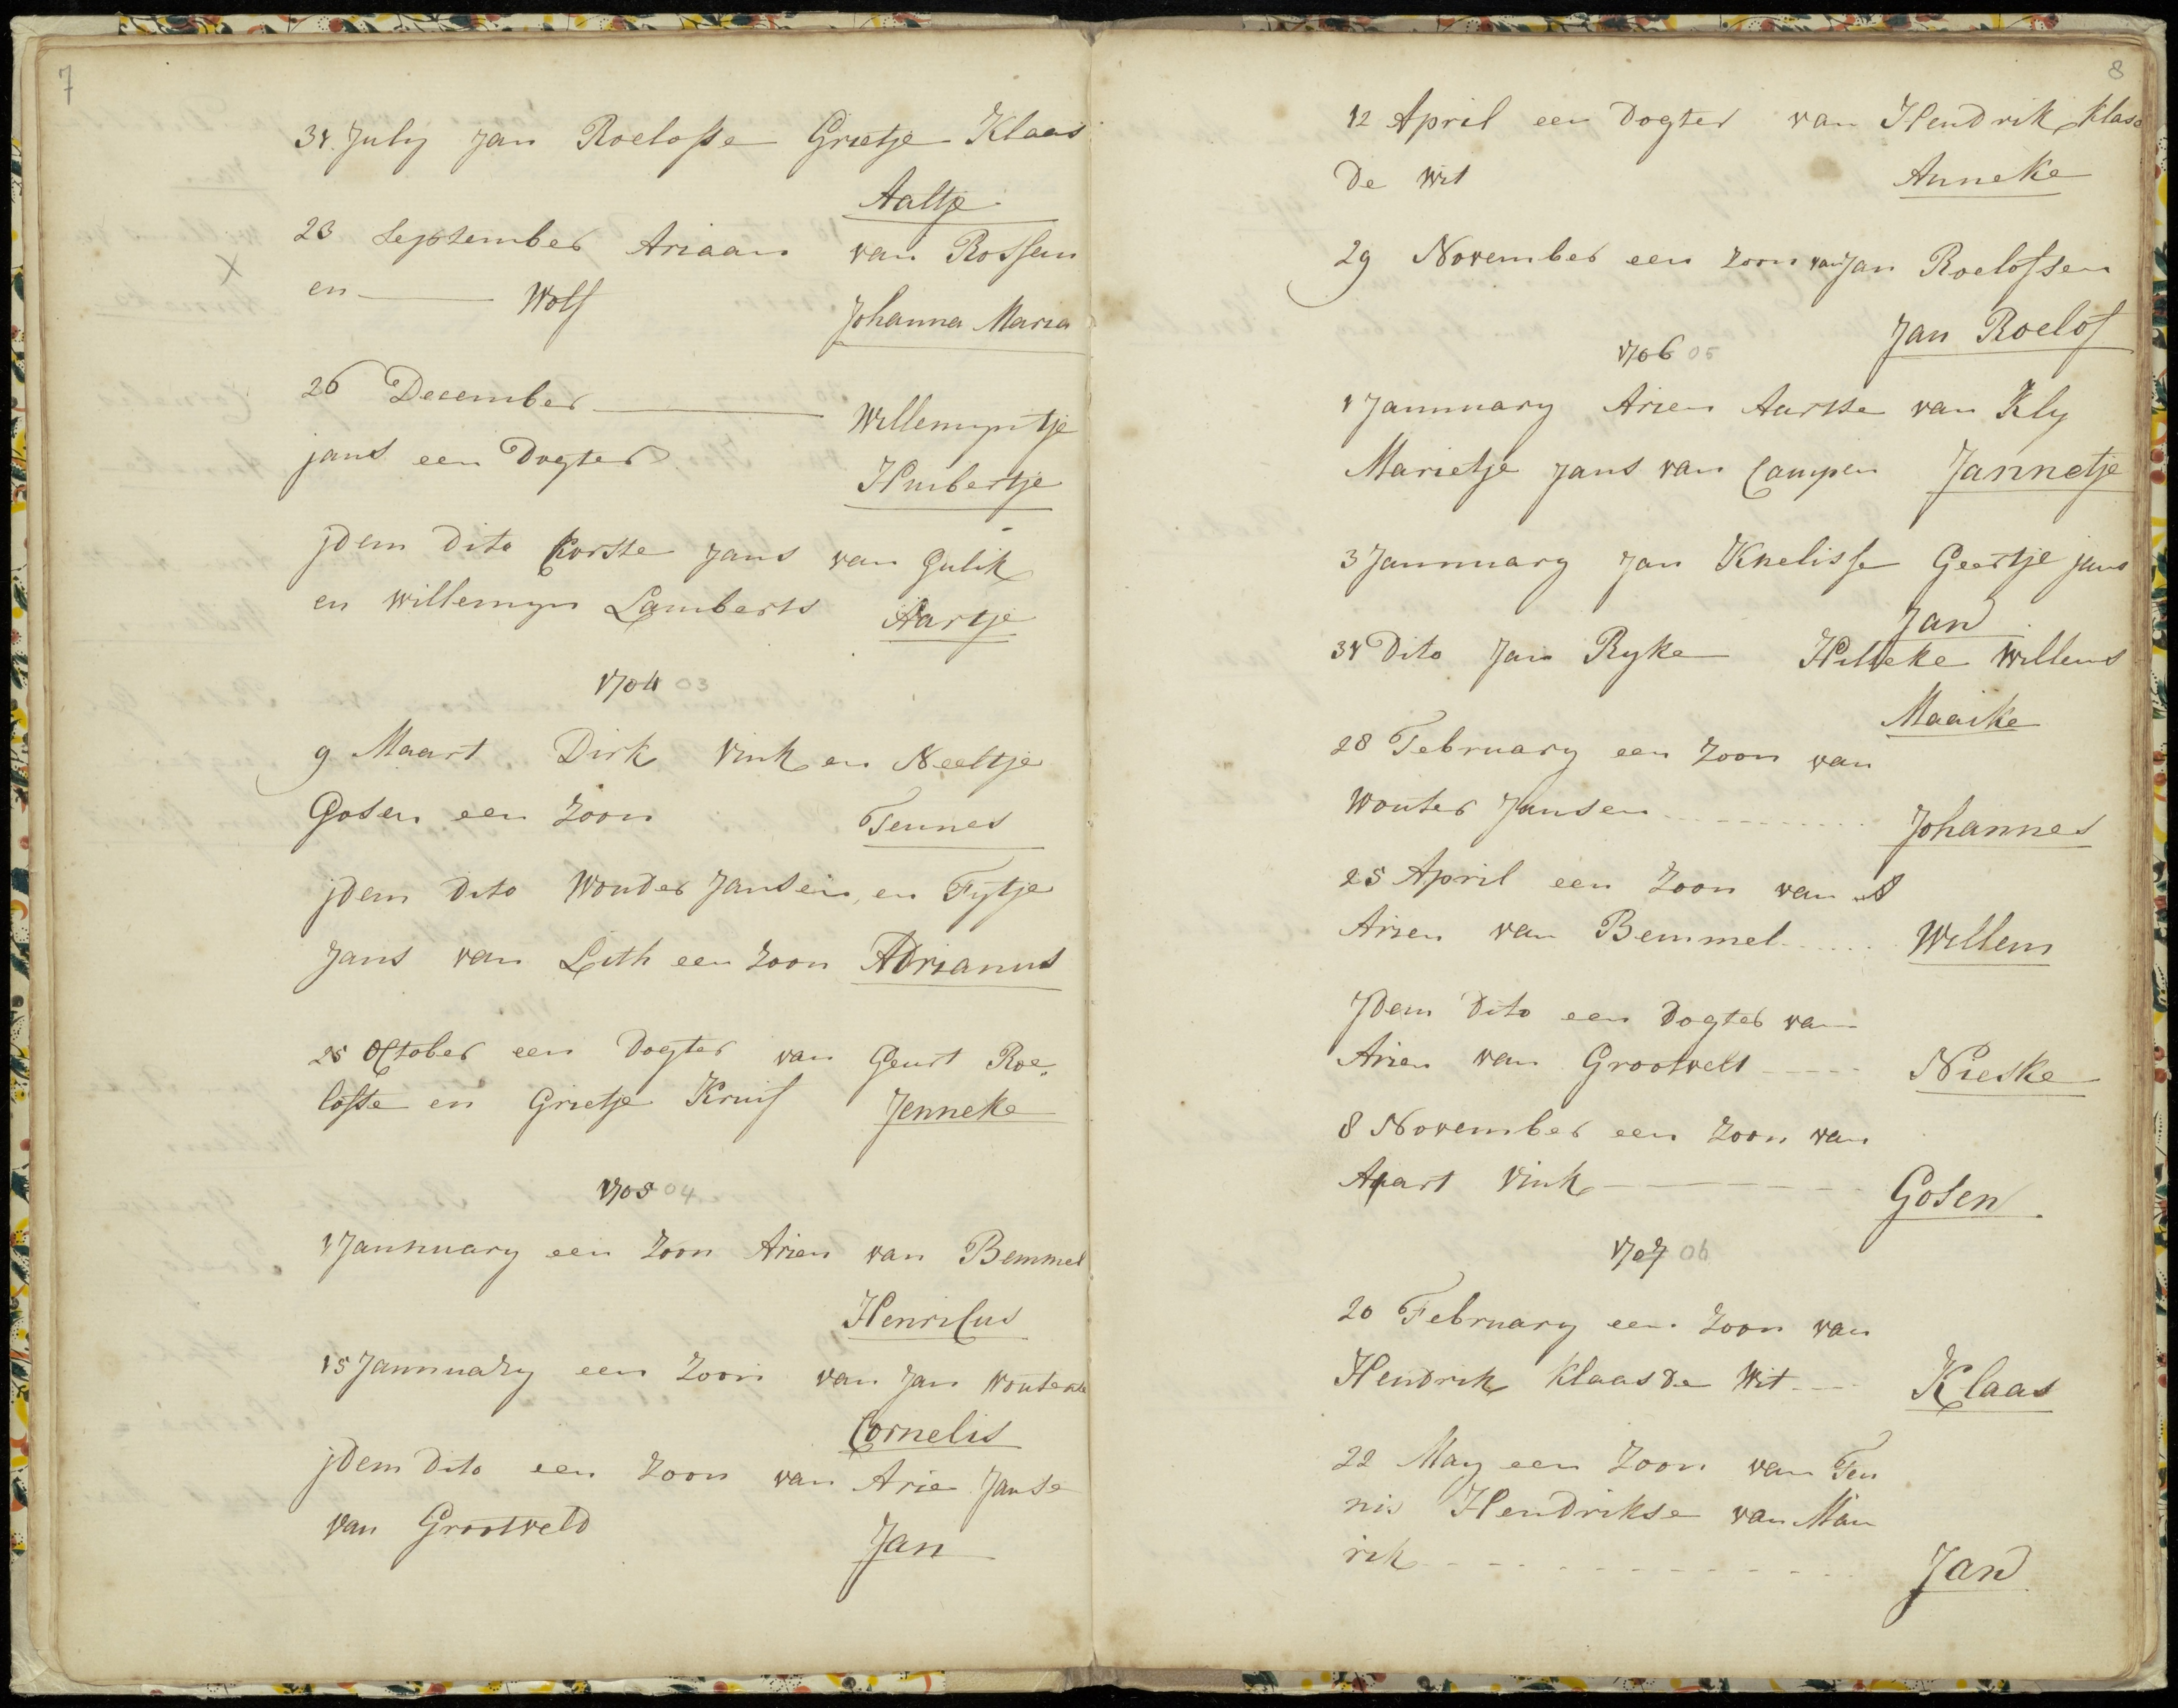 7
31 July Jan Roelofse Grietje Klaas
Aaltje
23 September Ariaan van Rossem
X
en Wolf Johanna Maria
26 December Willemyntje
jans een Dogter
Huibertje
jdem dito Corste Jans van Gulik
en Willemyn Lamberts Aartje
1704 03
9 Maart Dirk Vink en Neeltje
Gosen een zoon Teunes
jdem dito Wouder Jansen, en Fytje
Jans van Lith een zoon Adrianus
25 October een Dogter van Geurt Roe
lofse en Grietje Kruif Jenneke
1705 04
1 Jannuary een zoon Arien van Bemmel
Henricus
15 Jannuary een zoon van Jan Wouterse
Cornelis
jdem dito een zoon van Arie Janse
van Grootveld Jan
8
12 April een Dogter van Hendrik Klase
De Wit Anneke
29 November een zoon van Jan Roelofsen
Jan Roelof
1706 05
1 Jannuary Arien Aartse van Kly
Marietje Jans van Campen Jannetje
3 Jannuary Jan Knelisse Geertje jans
Jan
31 Dito Jan Ryke Hilleke Willems
Maaike
28 February een zoon van
Wouter Jansen Johannes
25 April een zoon van A
Arien van Bemmel Willem
Jdem Dito een Dogter van
Arien van Grootvelt Nieske
8 November een zoon van
Apart Vink Gosen
1707 06
20 February een zoon van
Hendrik Klaas de Wit Klaas
22 May een zoon van Teu
nis Hendrikse van Mau
rik Jan